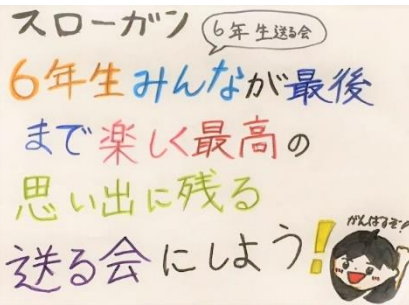 スローガン
6年生送る会
6年生みんなが最後
まで楽しく最高の
思い出に残る
送る会にしよう!
がんばるぞ!